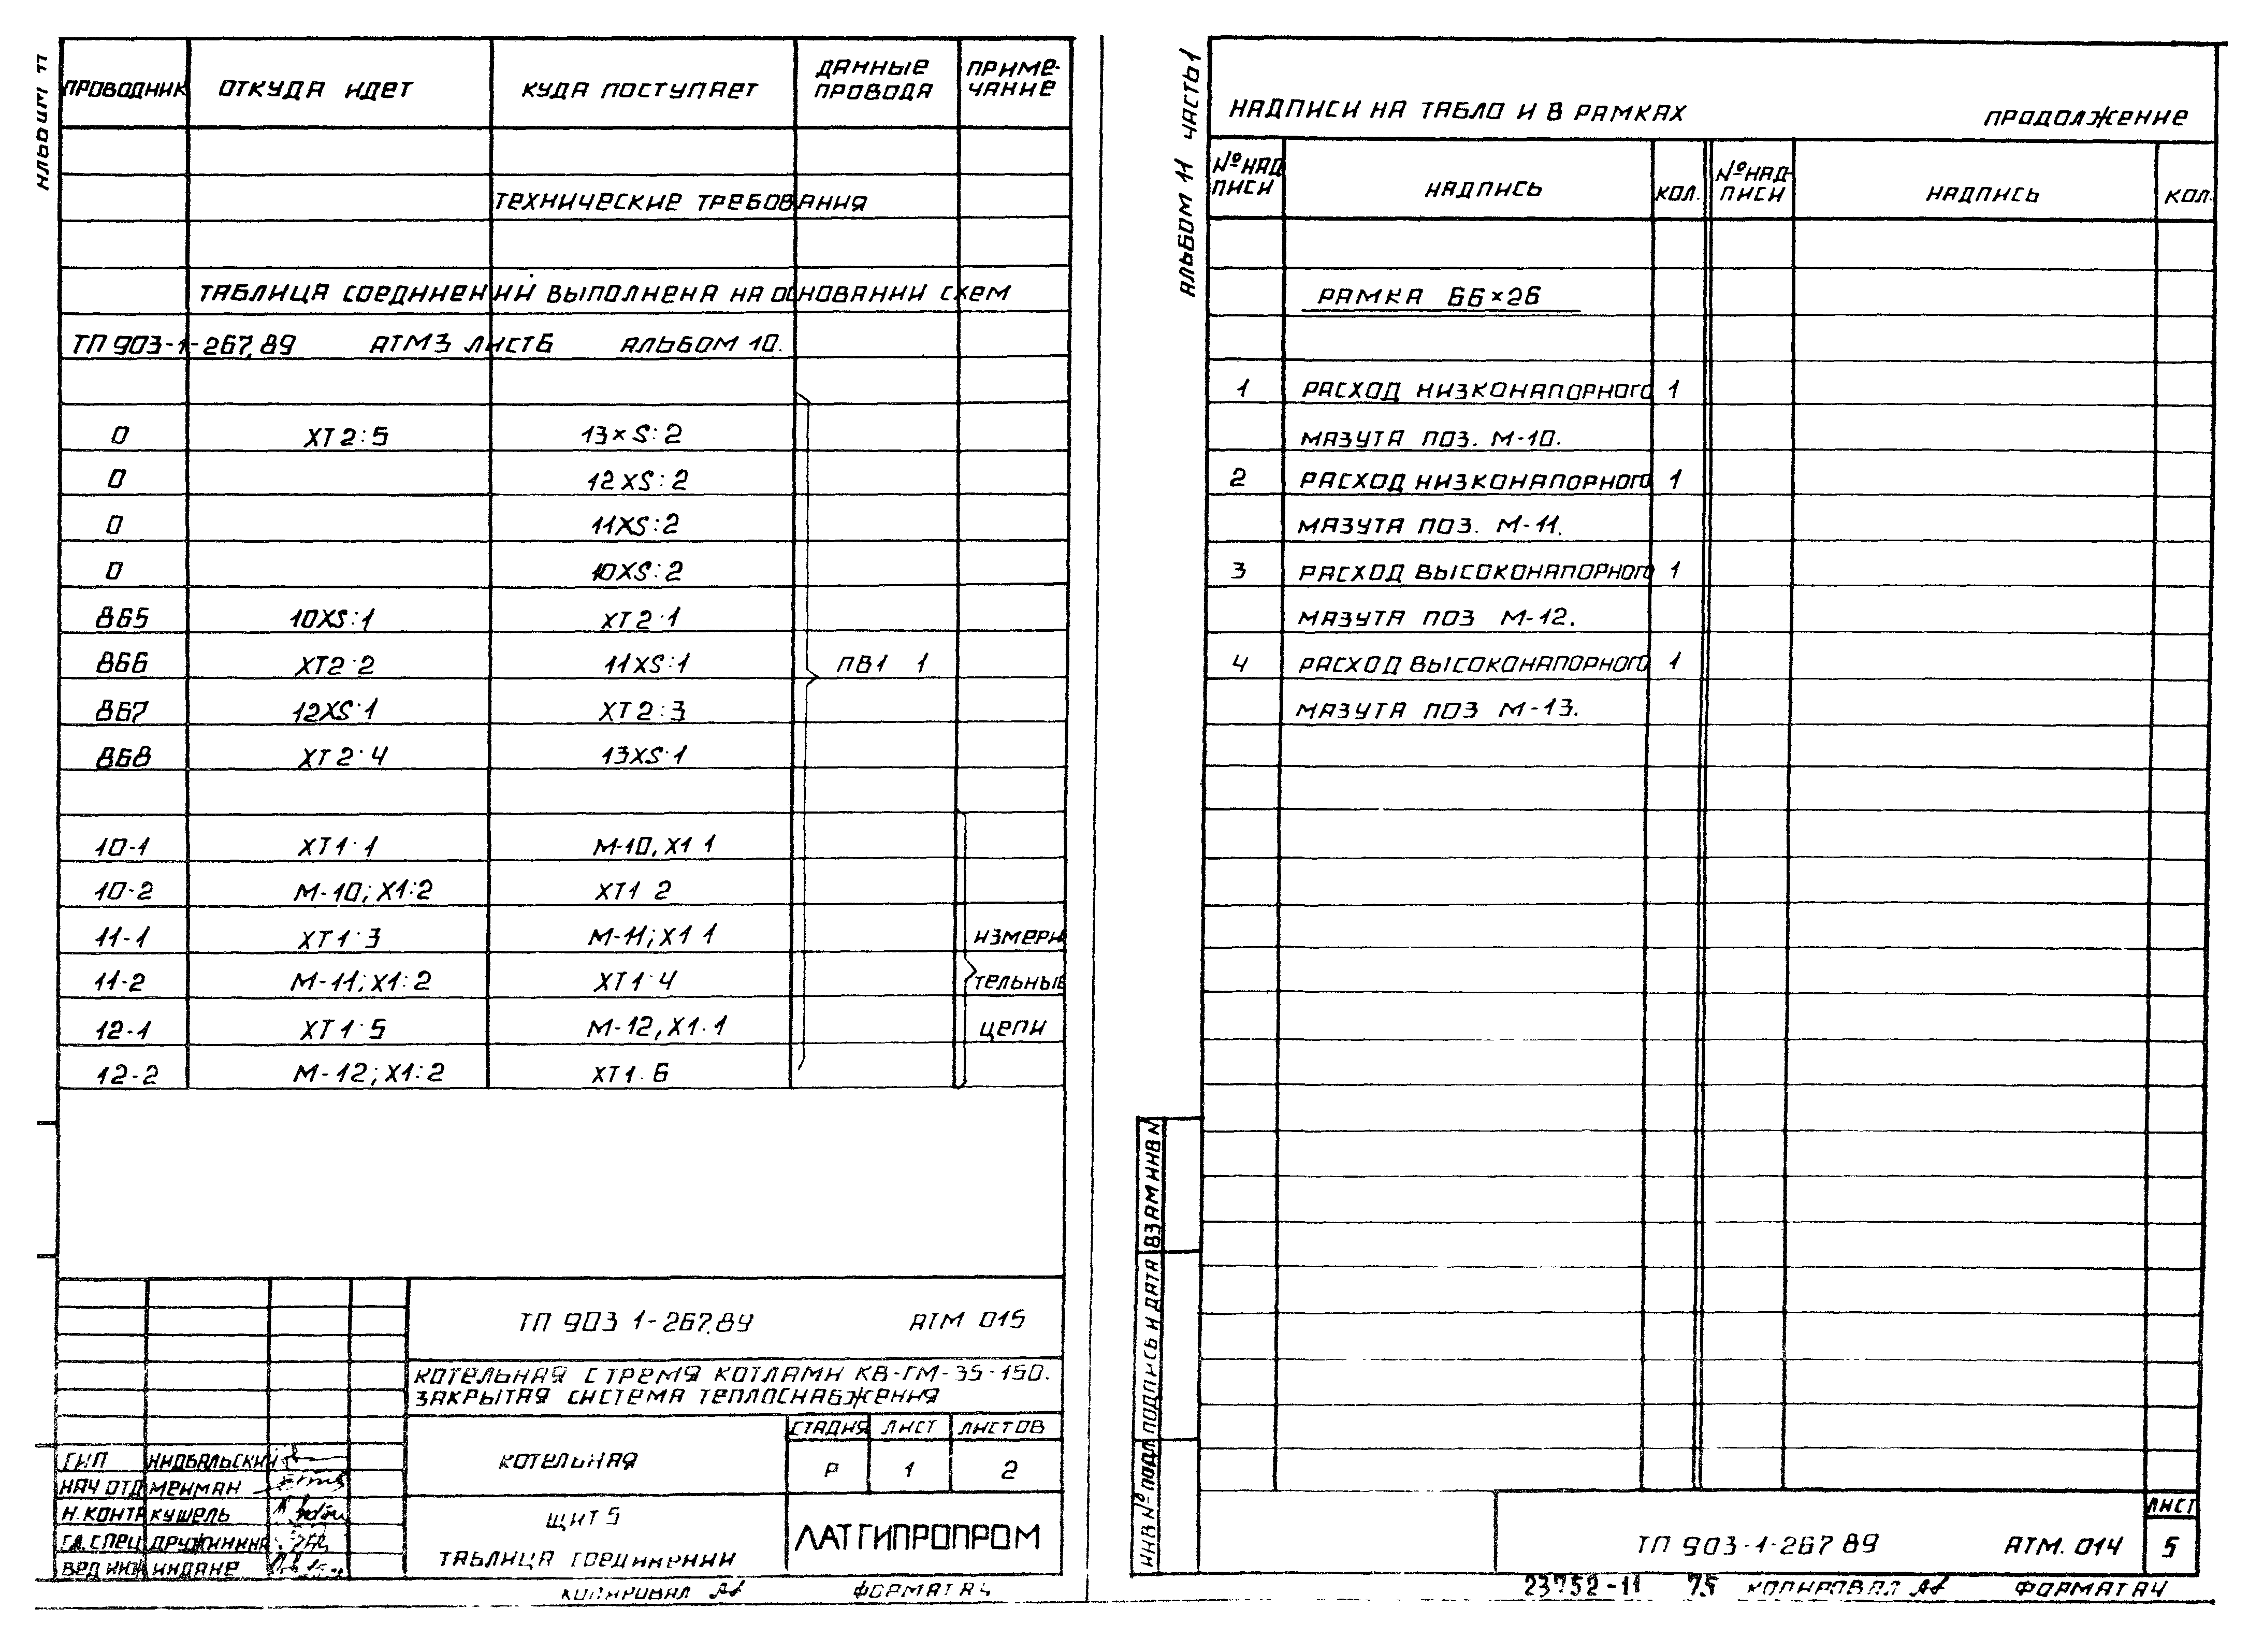 ПРОВОДНИК ОТКУДА ИДЕТ КУДА ПОСТУПАЕТ ДАННЫЕ ПРОВОДА ПРИМЕ-ЧАНИЕ
ТЕХНИЧЕСКИЕ ТРЕБОВАНИЯ
ТАБЛИЦА СОЕДИНЕНИЙ ВЫПОЛНЕНА НА ОСНОВАНИИ СХЕМ
ТП 903-1-267.89 АТМ3 ЛИСТ6 АЛЬБОМ 10.
0 XT2:5 13×S:2
0 12XS:2
0 11XS:2
0 10XS:2
865 10XS:1 XT2·1
866 XT2·2 11XS:1 ПВ1 1
867 12XS·1 XT2:3
868 XT2·4 13XS·1
10-1 XT1·1 М-10, X1 1
10-2 М-10; X1:2 XT1 2
11-1 XT1·3 М-11; X1 1 ИЗМЕРИ
11-2 М-11; X1:2 XT1·4 ТЕЛЬНЫЕ
12-1 XT1·5 М-12, X1.1 ЦЕПИ
12-2 М-12; X1:2 XT1.6
ТП 903 1-267.89 АТМ 015
КОТЕЛЬНАЯ С ТРЕМЯ КОТЛАМИ КВ-ГМ-35-150.
ЗАКРЫТАЯ СИСТЕМА ТЕПЛОСНАБЖЕНИЯ
СТАДИЯ ЛИСТ ЛИСТОВ
КОТЕЛЬНАЯ Р 1 2
ГИП
НАЧ ОТД МЕНМАН
Н.КОНТР КУШЕЛЬ
ГЛ.СПЕЦ ДРУЖИНИНА
ВЕД ИНЖ ИНДАНЕ
ЩИТ 5
ТАБЛИЦА СОЕДИНЕНИЙ
ЛАТГИПРОПРОМ
КОПИРОВАЛ ФОРМАТ А4
АЛЬБОМ 11 ЧАСТЬ 1
НАДПИСИ НА ТАБЛО И В РАМКАХ ПРОДОЛЖЕНИЕ
№ НАД ПИСИ НАДПИСЬ КОЛ. № НАД-ПИСИ НАДПИСЬ КОЛ.
РАМКА 66×26
1 РАСХОД НИЗКОНАПОРНОГО 1
МАЗУТА ПОЗ. М-10.
2 РАСХОД НИЗКОНАПОРНОГО 1
МАЗУТА ПОЗ. М-11.
3 РАСХОД ВЫСОКОНАПОРНОГО 1
МАЗУТА ПОЗ М-12.
4 РАСХОД ВЫСОКОНАПОРНОГО 1
МАЗУТА ПОЗ М-13.
ВЗАМ ИНВ №
ПОДПИСЬ И ДАТА
ИНВ № ПОДЛ
ТП 903-1-267 89 АТМ. 014
ЛИСТ
5
23752-11 75 КОПИРОВАЛ ФОРМАТ А4